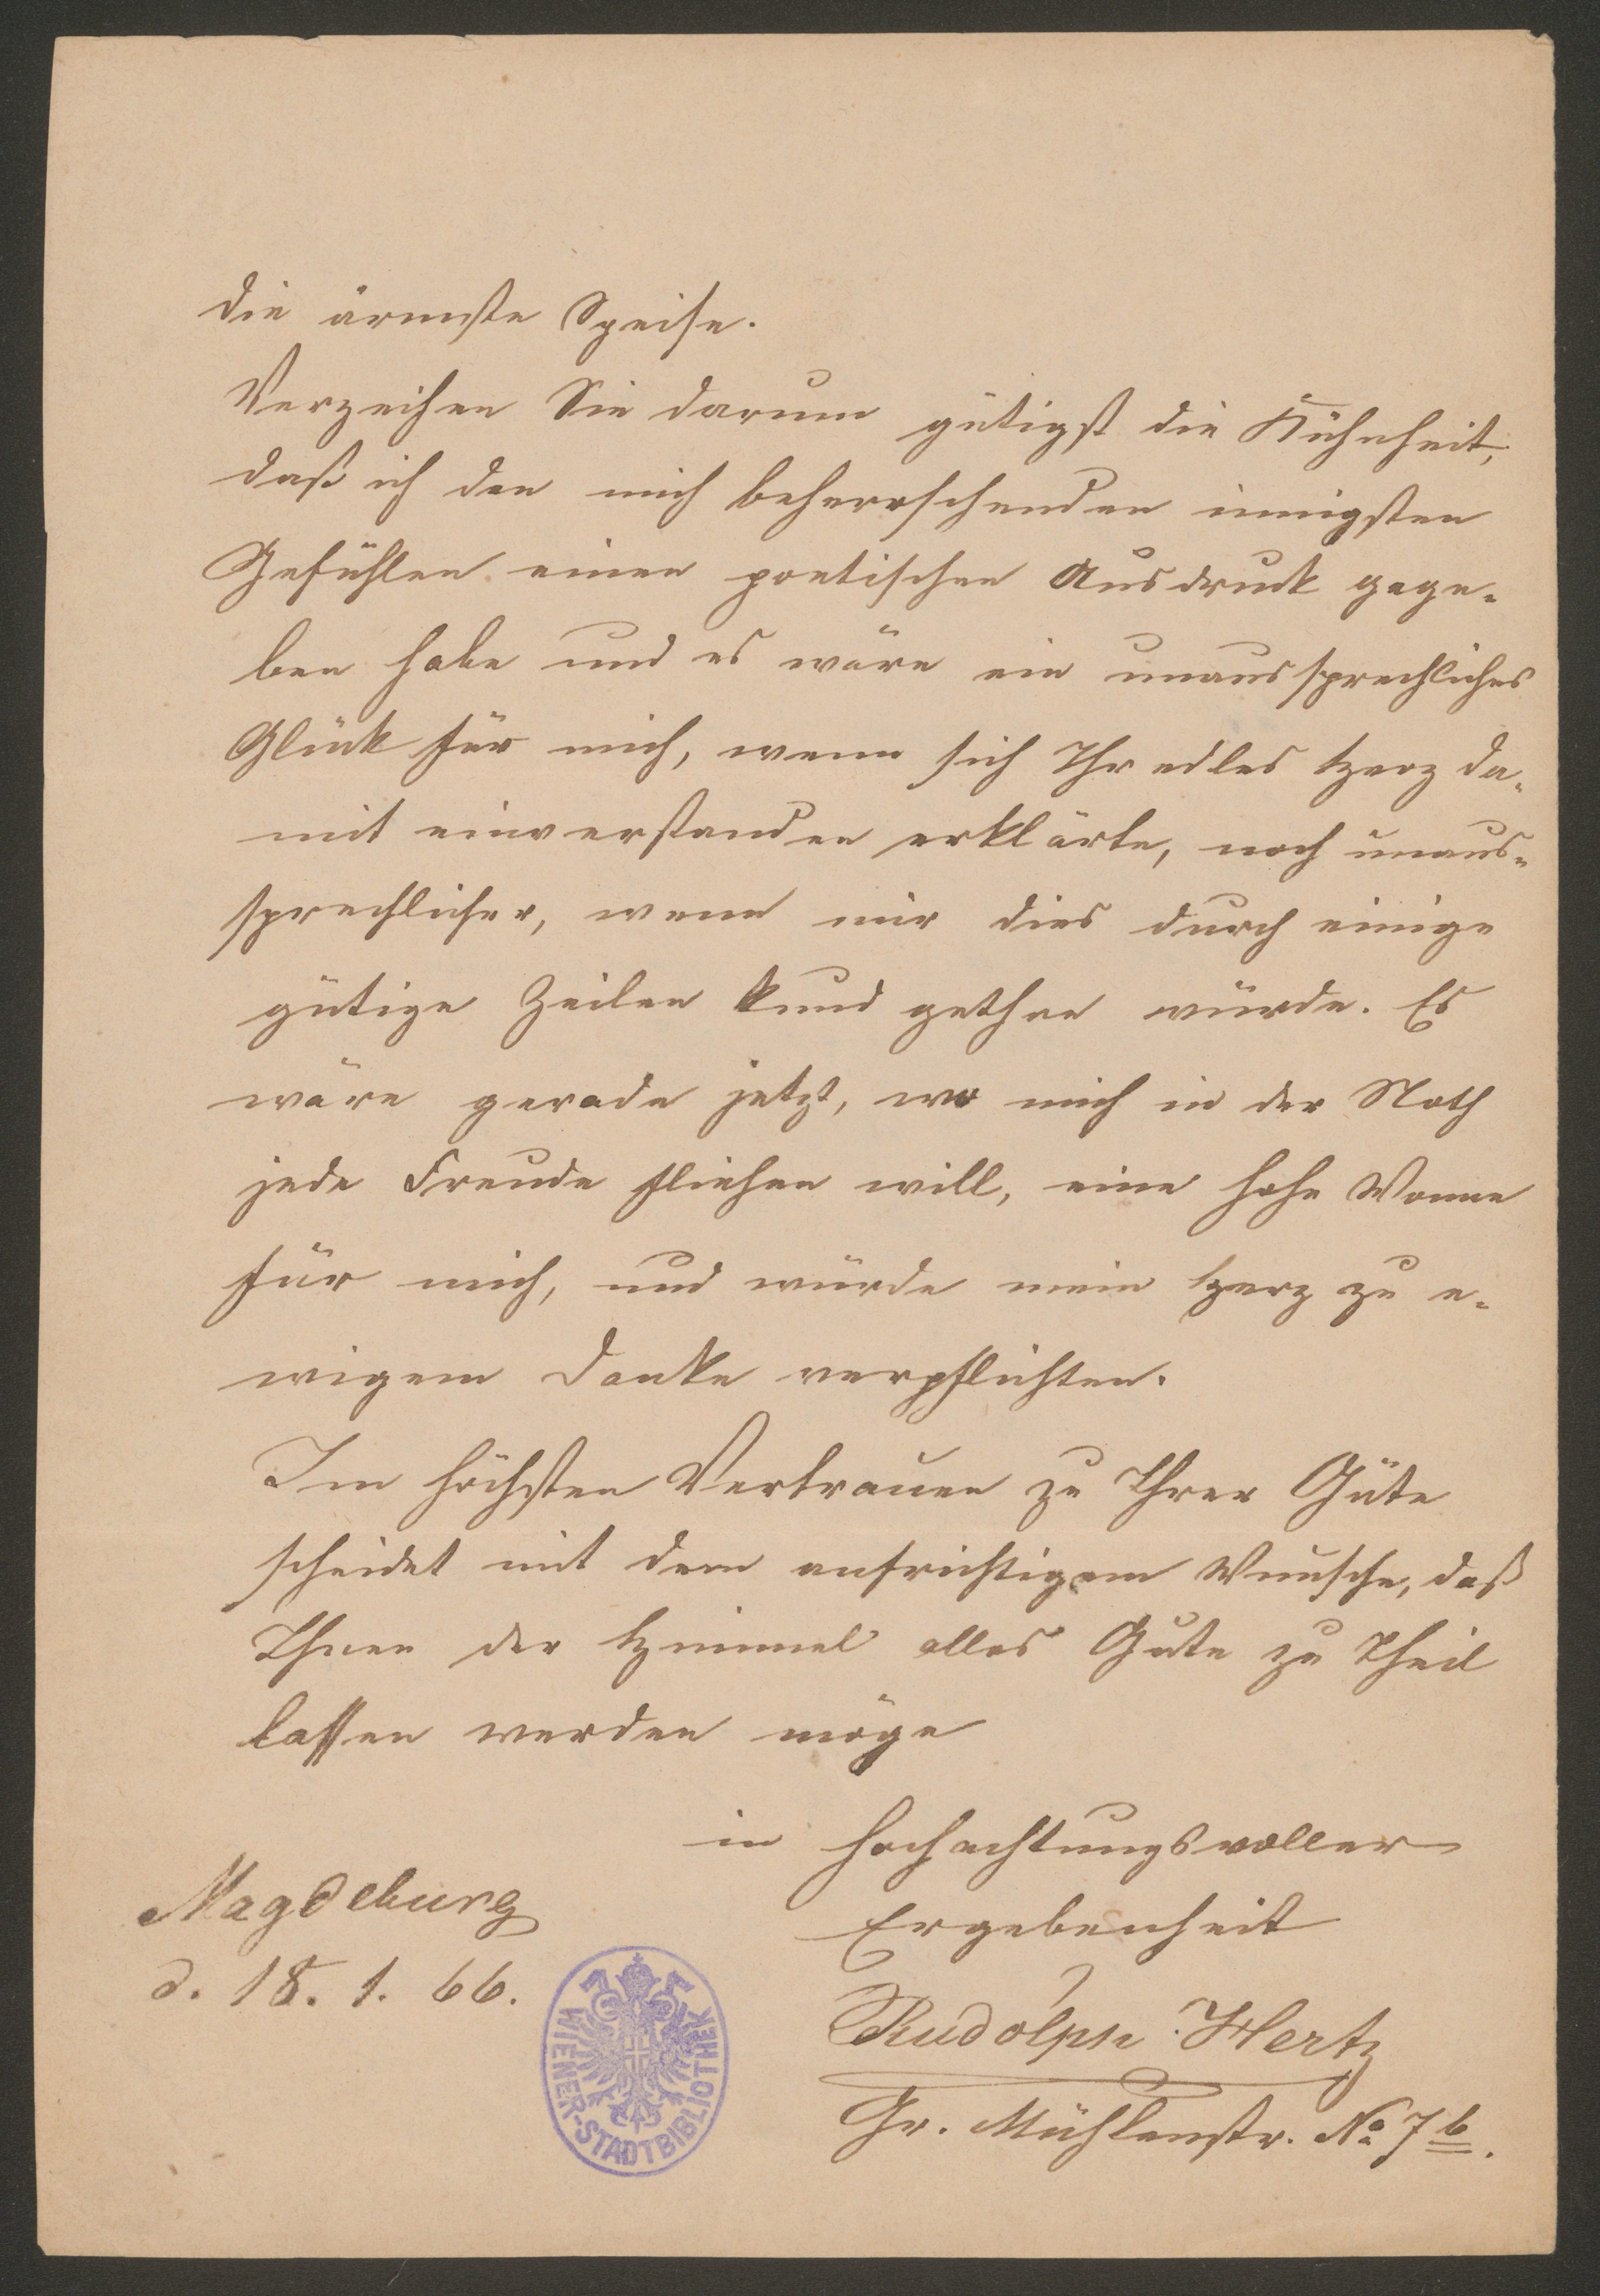 die ärmste Speise.
Verzeihen Sie darum gütigst die Kühnheit,
daß ich den mich beherrschenden innigsten
Gefühlen einen poetischen Ausdruck gege-
ben habe und es wäre ein unaussprechliches
Glück für mich, wenn sich Ihr edles Herz da-
mit einverstanden erklärte, noch unaus-
sprechlicher, wenn mir dies durch einige
gütige Zeilen kund gethan würde. Es
wäre gerade jetzt, wo mich in der Noth
jede Freude fliehen will, eine hohe Wonne
für mich, und würde mein Herz zu e-
wigem Danke verpflichten.
Im höchsten Vertrauen zu Ihrer Güte
scheidet mit dem aufrichtigem Wunsche, daß
Ihnen der Himmel alles Gute zu Theil
lassen werden möge
in hochachtungsvoller
Ergebenheit
Magdeburg
d. 18. 1. 66.
Rudolph Hertz
Gr. Mühlenstr. No 7b.
WIENER-STADTBIBLIOTHEK